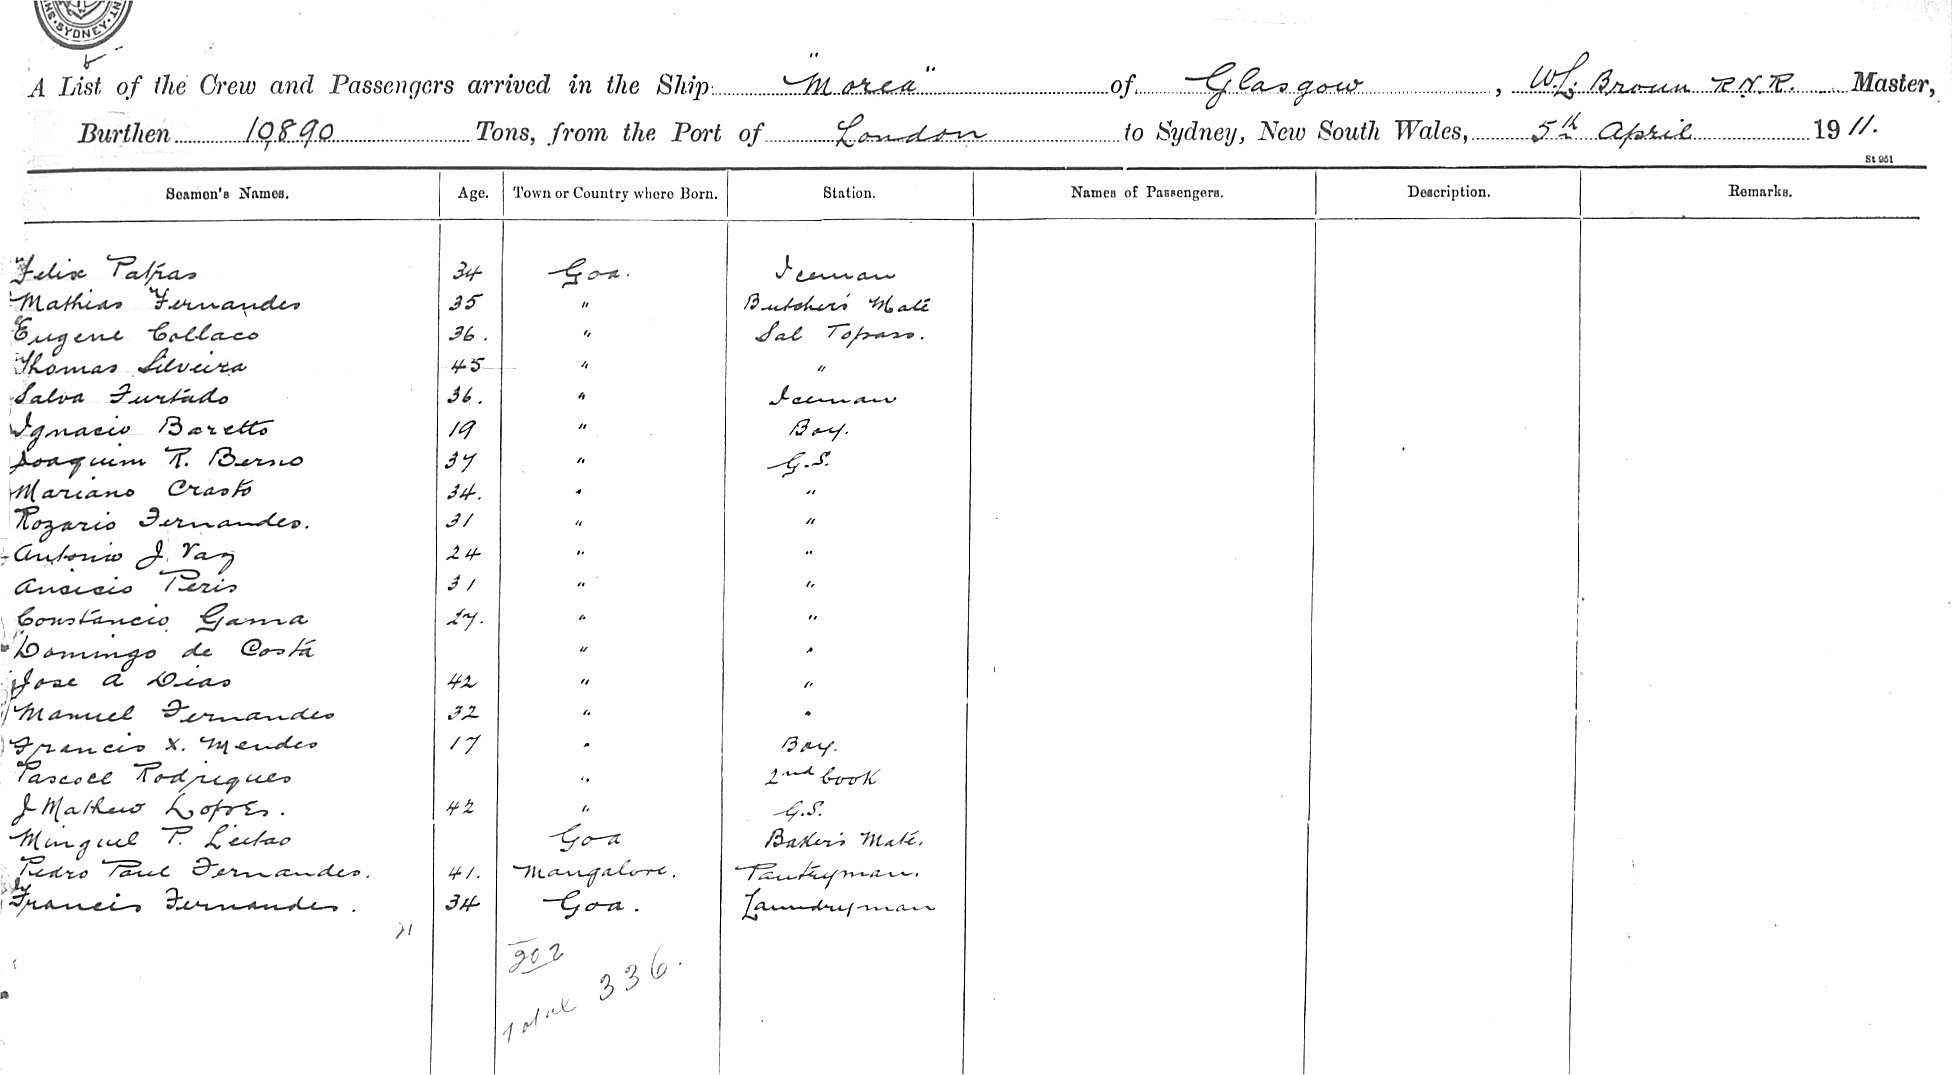 SYDNEY
A List of the Crew and Passengers arrived in the Ship "Morea" of Glasgow, W.L. Broun R.N.R. Master,
Burthen 10,890 Tons, from the Port of London to Sydney, New South Wales, 5th April 1911.
St 951
Seamen's Names. Age. Town or Country where Born. Station. Names of Passengers. Description. Remarks.
Felix 34 Goa. Iceman
Mathias Fernandes 35 " Butcher's Mate
Eugene Collaco 36. " Sal Topass.
Thomas Silveira 45 " "
Salva Furtado 36. " Iceman
Ignacio Baretto 19 " Boy.
Joaquim R. Berno 37 " G.S.
Mariano Crasto 34. " "
Rozario Fernandes. 31 " "
Antonio J. Vaz 24 " "
Peris 31 " "
Constancio Gama 27. " "
Domingo de Costa " "
Jose A Dias 42 " "
Manuel Fernandes 32 " "
Francis X. Mendes 17 " Boy.
Pascoel Rodrigues " 2nd Cook
J Mathew Lopes. 42 " G.S.
Minguel P. Leitao Goa Baker's Mate.
Pedro Paul Fernandes. 41. Mangalore. Pantryman.
Francis Fernandes. 34 Goa. Laundryman
21
202
Total 336.